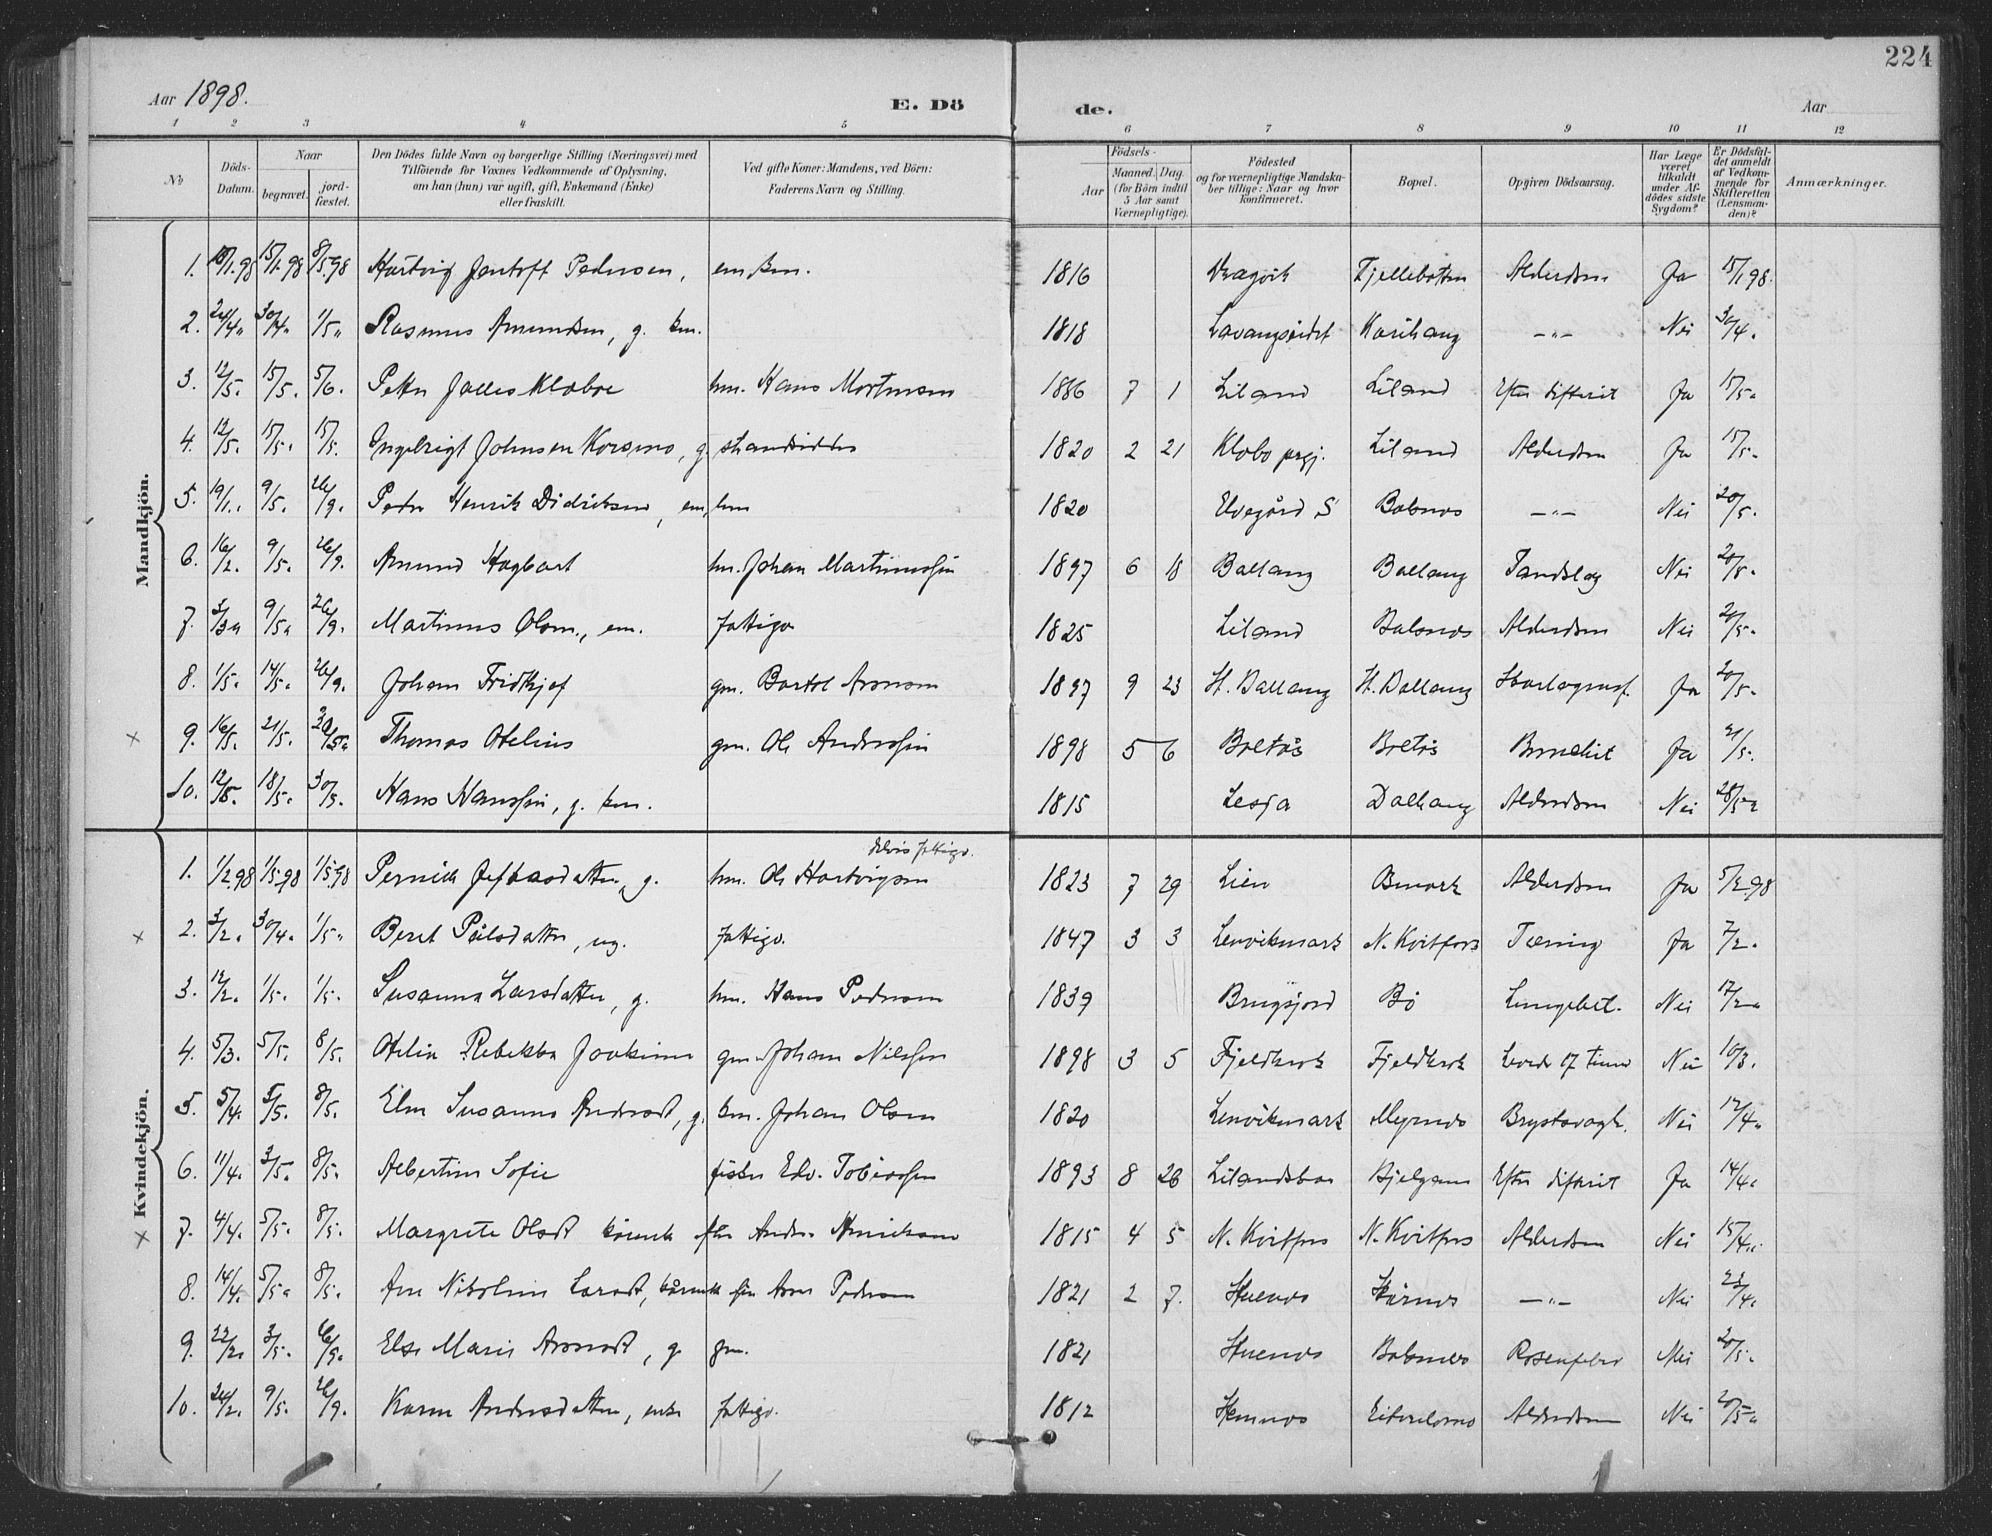 224
Aar 1898. E. Dö de. Aar
1 2 3 4 5 6 7 8 9 10 11 12
No Döds-Datum. Naar begravet. jordfæstet. Den Dödes fulde Navn og borgerlige Stilling (Næringsvei) med Tilföiende for Voxnes Vedkommende af Oplysning, om han (hun) var ugift, gift, Enkemand (Enke) eller fraskilt. Ved gifte Koner: Mandens, ved Börn: Faderens Navn og Stilling. Födsels- Aar Maaned. Dag. (for Börn indtil 5 Aar samt Værnepligtige). Födested og for værnepligtige Mandskaber tillige: Naar og hvor konfirmeret. Bopæl. Opgiven Dödsaarsag. Har Læge været tilkaldt under Afdödes sidste Sygdom? Er Dödsfaldet anmeldt af Vedkommende for Skifteretten (Lensmanden)? Anmærkninger.
Mandkjön.
1. 15/1.98 8/5.98 Hartvig Jentoft Pedersen, em. km. 1816 Fjellebotten Alderdom Ja 15/1 98.
2. 24/4" 30/4" 1/5" Rasmus Amundsen, g. km. 1818 Lavangseidet Karihaug —"— Nei 30/4.
3. 12/5. 15/5. 5/6. Peter Jælles Klæboe hm. Hans Mortensen 1886 7 1 Liland Liland Efter difterit Ja 15/5"
4. 12/5. 15/5. 15/5. Ingebrigt Johnsen Korsmo, g. strandsidder 1820 2 21 Klæbo prgj. Liland Alderdom Ja 15/5.
5. 19/1. 9/5. 26/9. Peder Henrik Didriksen, em. hm 1820 Elvegård S Balsnes —"— Nei 20/5.
6. 16/2. 9/5. 26/9. Amund Hagbart hm. Johan Martinussen 1897 6 18 Ballang Ballang Tandslag Nei 20/5.
7. 3/3" 9/5" 26/9. Martinus Olsen, em. fattigv. 1825 Liland Balsnes Alderdom Nei 20/5.
8. 1/5. 14/5. 26/9. Johan Fridtjof gm. Bartol Aronsen 1897 9 23 H. Ballang H. Ballang Ja 20/5.
9. 16/5. 21/5. 30/5. Thomas Otelius gm. Ole Anderssen 1898 5 6 Bretås Bretås Bronchit Ja 21/5.
10. 12/5. 18/5. 30/5. Hans Hanssen, g. km. 1815 Lesja Dalhaug Alderdom Nei 28/5"
Kvindekjön.
delvis fattigv.
1. 1/2 98 1/5 98 1/5 98 Pernille Jeftasdatter, g. hm. Ole Hartvigsen 1823 7 29 Lien Bmark Alderdom Ja 5/2 98
2. 3/2. 30/4. 1/5" Beret Pålsdatter, ug. fattigv. 1847 3 3 Lenvikmark N. Kvitfors Tæring Ja 7/2.
3. 12/2. 1/5. 1/5. Susanna Larsdatter, g. hm. Hans Pedersen 1839 Bø Lungebet. Nei 17/2"
4. 5/3. 5/5. 8/5. Otelia Rebekka Joakima gm. Johan Nilssen 1898 3 5 Fjeldkrok Fjeldkrok Levde 17 timer Nei 10/3.
5. 5/4. 3/5. 8/5. Elen Susanna Andersdt, g. km. Johan Olsen 1820 Lenvikmark Myrnes Nei 12/4"
6. 11/4. 3/5. 8/5. Albertine Sofie fisker Edv. Tobiassen 1893 8 26 Efter difterit Ja 14/4.
7. 4/4. 5/5. 8/5. Margrete Olsdt kårenk. efter Anders Henriksen 1815 4 5 N. Kvitfors N. Kvitfors Alderdom Nei 15/4.
8. 14/4. 5/5. 8/5. Ane Nikoline Larsdt, kårenk. Arn Pedersen 1821 2 7. —"— Nei 23/4.
9. 22/2. 3/5. 26/9. Else Marie Aronsdt, g. gm. 1821 Balsnes Rosenfeber Nei 20/5.
10. 24/2. 9/5. 26/9. Karen Andersdatter, enke fattigv. 1812 Alderdom Nei 20/5"